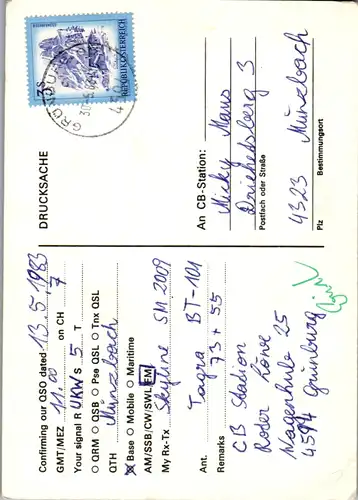 Confirming our QSO dated: 13.5.1983
GMT/MEZ 11.00 on CH 7
Your signal R UKWS 5 T
O QRM O QSB O Pse QSL O Tnx QSL
QTH Münzbach
Base O Mobile O Maritime
AM/SSB/CW/SWL/FM
My Rx-Tx Skyline SM 2009
Ant. Tagra BT-101
Remarks 73 + 55
CB Station
Roter Löwe
Wagenhub 25
4594 Grünburg
DRUCKSACHE
3 S
REPUBLIK ÖSTERREICH
An CB-Station:
Micky Maus
3
Postfach oder Straße
4323 Münzbach
Plz Bestimmungsort